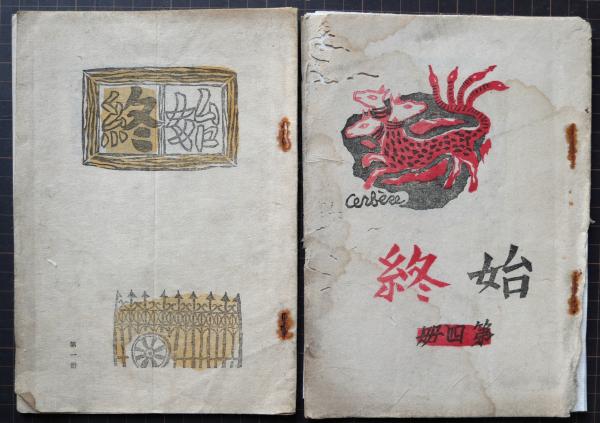 始終
第一冊
Cerbère
始終
第四冊